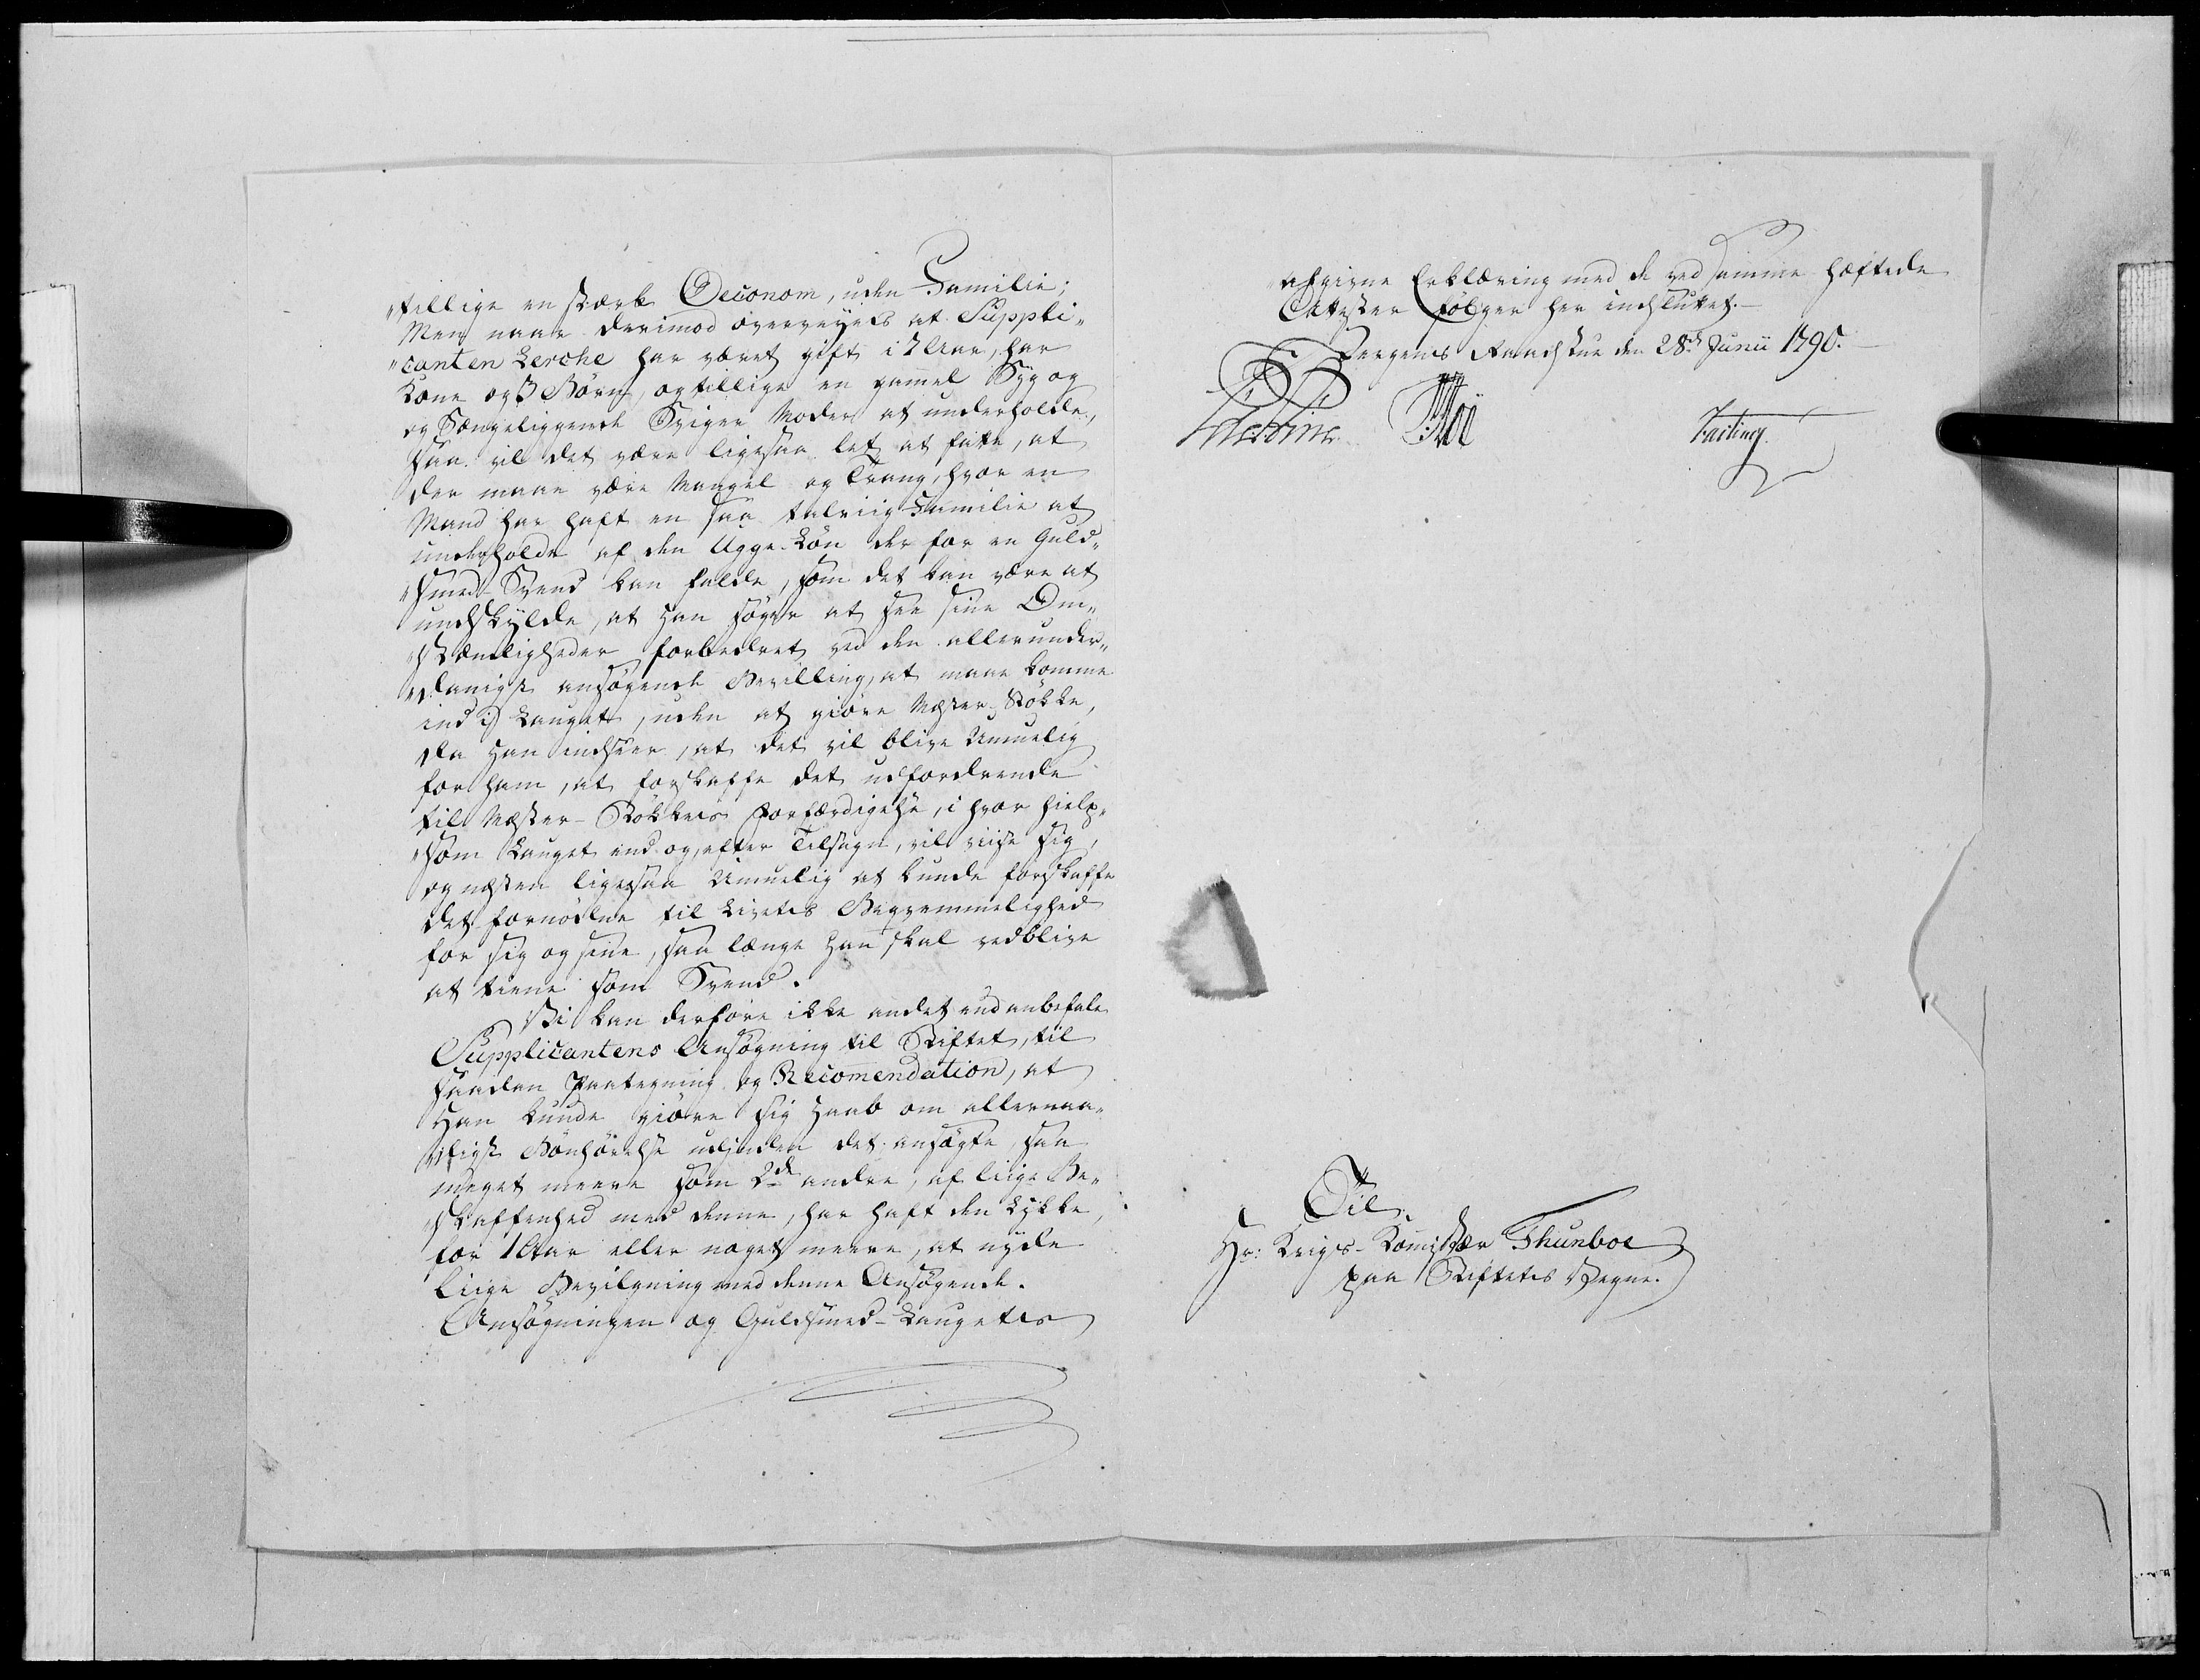 tillige en stærk Oeconom, uden Familie;
Men naar derimod overveyes at Suppli-
"canten Lerche har været gift i 7 Aar, har
Kone og 3 Børn, og tillige en gamel Syg og
og Sængeliggende Sviger Moder at underholde,
saa vil det være ligesaa let at fatte, at
der maae være Mangel og Trang, hvor en
Mand har haft en saa talriig Familie at
underholde af den Uge-Løn der for en Guld-
"smed-Svend kan falde, som det kan være at
undskylde, at han søger at see sine Om-
"stændigheder forbedret ved den allerunder-
"danigst ansøgende Bevilling, at maae komme
ind i Lauget, uden at giøre Mester-Støkke,
da han indseer, at det vil blive Umuelig
for ham, at forskaffe det udfordrende
til Mester-Støkkets forfærdigelse, i hvor hielp-
"som Lauget end og, efter Tilsagn, vil viise sig,
og næsten ligesaa Umuelig at kunde forskaffe
det fornødne til Livets Beqvemmelighed
for sig og sine, saa længe han skal vedblive
at tiene som Svend.
Vi kan derfore ikke andet end anbefale
Supplicantens Ansøgning til Stiftet, til
saadan Paategning og Recomendation, at
Han kunde giøre sig Haab om allernaa-
"digst Bønhørelse udi det ansøgte, saa
meget meere som 2de andre, af liige Be-
"skaffenhed med denne, har haft den Lykke,
for 1 Aar eller noget meere, at nyde
liige Bevilgning med denne Ansøgende.
Ansøgningen og Guldsmed-Laugets
afgivne Erklæring med de ved samme hæftede
Attester følger her indsluttet.
Bergens Raadstue den 28de Junii 1790.
Fasting
Til
Hr: Krigs-Komissær Thunboe
paa Stiftets Vegne.